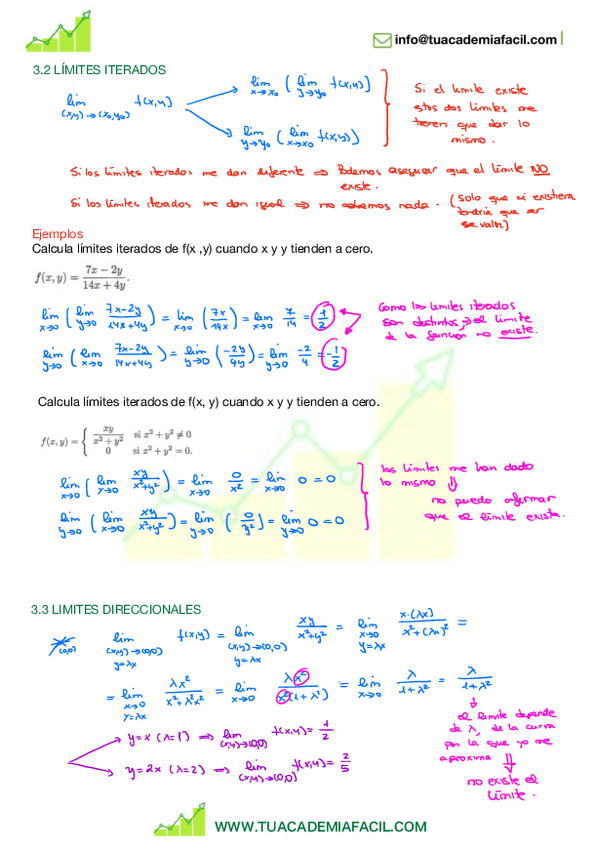 info@tuacademiafacil.com |
3.2 LÍMITES ITERADOS
lim (x,y)→(x₀,y₀) f(x,y)
lim x→x₀ ( lim y→y₀ f(x,y) )
lim y→y₀ ( lim x→x₀ f(x,y) )
Si el límite existe
estos dos límites me
tienen que dar lo
mismo.
Si los límites iterados me dan diferente ⇒ Podemos asegurar que el límite NO
existe.
Si los límites iterados me dan igual ⇒ no sabemos nada. (Solo que si existiera
tendría que ser
ese valor)
Ejemplos
Calcula límites iterados de f(x ,y) cuando x y y tienden a cero.
f(x,y) = (7x − 2y)/(14x + 4y).
lim x→0 ( lim y→0 (7x-2y)/(14x+4y) ) = lim x→0 (7x/14x) = lim x→0 7/14 = 1/2
lim y→0 ( lim x→0 (7x-2y)/(14x+4y) ) = lim y→0 (-2y/4y) = lim y→0 -2/4 = -1/2
Como los límites iterados
son distintos ⇒ el límite
de la función no existe.
Calcula límites iterados de f(x, y) cuando x y y tienden a cero.
f(x,y) = { xy/(x² + y²) si x² + y² ≠ 0
0 si x² + y² = 0.
lim x→0 ( lim y→0 xy/(x²+y²) ) = lim x→0 0/x² = lim x→0 0 = 0
lim y→0 ( lim x→0 xy/(x²+y²) ) = lim y→0 ( 0/y² ) = lim y→0 0 = 0
los límites me han dado
lo mismo ⇓
no puedo afirmar
que el límite exista.
3.3 LIMITES DIRECCIONALES
(0,0)
lim (x,y)→(0,0) y=λx f(x,y) = lim (x,y)→(0,0) y=λx xy/(x²+y²) = lim x→0 y=λx x·(λx)/(x²+(λx)²) =
= lim x→0 y=λx λx²/(x²+λ²x²) = lim x→0 λx²/(x²(1+λ²)) = lim x→0 λ/(1+λ²) = λ/(1+λ²)
y=x (λ=1) ⇒ lim (x,y)→(0,0) f(x,y) = 1/2
y=2x (λ=2) ⇒ lim (x,y)→(0,0) f(x,y) = 2/5
el límite depende
de λ, de la curva
por la que yo me
aproxima ⇓
no existe el
límite.
WWW.TUACADEMIAFACIL.COM